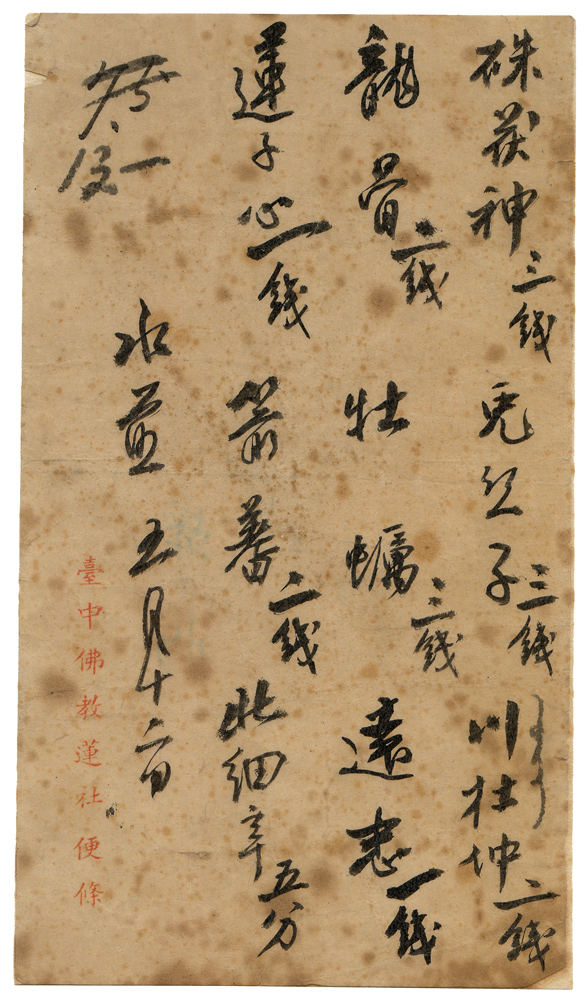 硃茯神三錢 兎丝子三錢 川杜仲二錢
龍骨二錢 牡蠣三錢 遠志一錢
蓮子心一錢 箭蓍二錢 北細辛五分
水 五月十二日
臺中佛教蓮社便條